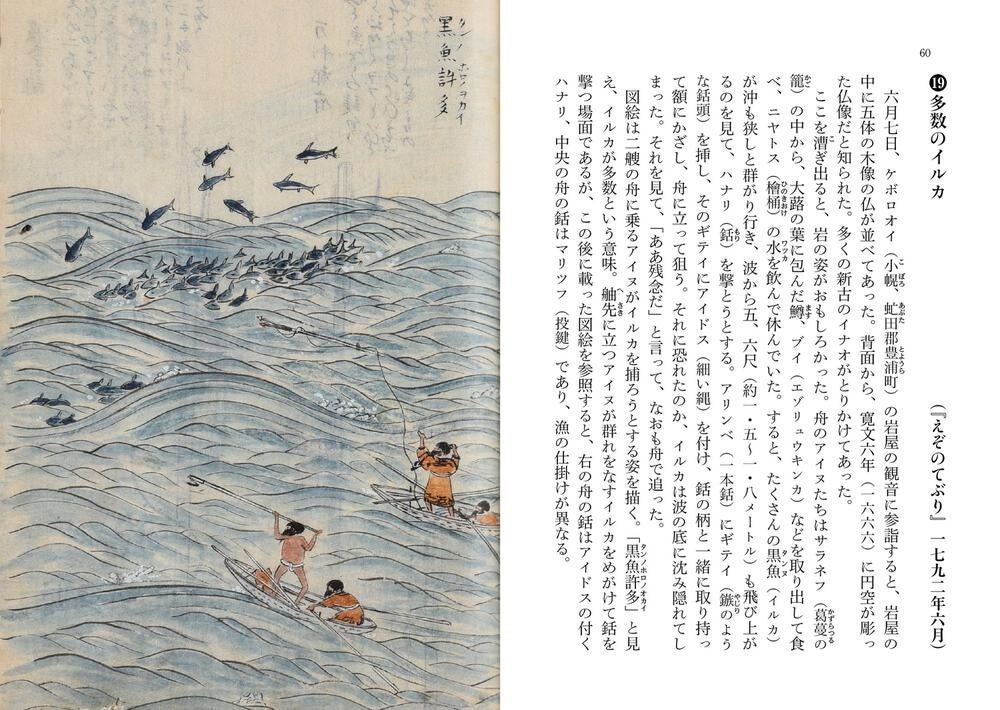 60
⓳多数のイルカ
(『えぞのてぶり』一七九二年六月)
六月七日、ケボロオイ(小幌、虻田郡豊浦町)の岩屋の観音に参詣すると、岩屋の
中に五体の木像の仏が並べてあった。背面から、寛文六年(一六六六)に円空が彫っ
た仏像だと知られた。多くの新古のイナオがとりかけてあった。
ここを漕ぎ出ると、岩の姿がおもしろかった。舟のアイヌたちはサラネフ(葛蔓の
籠)の中から、大蕗の葉に包んだ鱒、ブイ(エゾリュウキンカ)などを取り出して食
べ、ニヤトス(檜桶)の水を飲んで休んでいた。すると、たくさんの黒魚(イルカ)
が沖も狭しと群がり行き、波から五、六尺(約一・五〜一・八メートル)も飛び上が
るのを見て、ハナリ(銛)を撃とうとする。アリンベ(一本銛)にギテイ(鏃のよう
な銛頭)を挿し、そのギテイにアイドス(細い縄)を付け、銛の柄と一緒に取り持っ
て額にかざし、舟に立って狙う。それに恐れたのか、イルカは波の底に沈み隠れてし
まった。それを見て、「ああ残念だ」と言って、なおも舟で追った。
図絵は二艘の舟に乗るアイヌがイルカを捕ろうとする姿を描く。「黒魚許多」と見
え、イルカが多数という意味。舳先に立つアイヌが群れをなすイルカをめがけて銛を
撃つ場面であるが、この後に載った図絵を参照すると、右の舟の銛はアイドスの付く
ハナリ、中央の舟の銛はマリツフ(投鍵)であり、漁の仕掛けが異なる。
黒魚許多